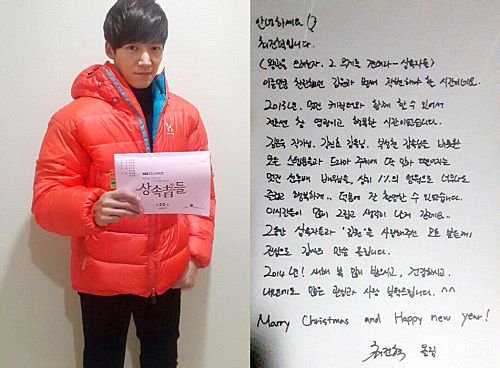 상속자들
20
안녕하세요
최진혁입니다.
(왕관을 쓰려는자, 그 무게를 견뎌라- 상속자들)
김원과 벌써 작별해야 할 시간이네요.
2013년, 멋진 캐릭터와 함께 할 수 있어서
참 영광이고 행복한 시간이었습니다.
김은숙 작가님, 감독님, 부성철 감독님을 비롯한
모든 스텝분들과 드라마
멋진 선후배 배우분들, 상위 1%의 열정으로 너무나도
즐겁고 행복하게.. 덕분에 잘 촬영할 수 있었습니다.
이시간들이 많이 그립고 생각이 나게
그동안 상속자들과 '김원'을 사랑해주신 모든 분들께,
진심으로 감사의 인사 올립니다.
2014년! 새해 복 많이 받으시고, 건강하시고.
내년에도 많은 관심과 사랑 부탁드립니다. ^^
Marry Christmas and Happy new year!
최진혁 올림.